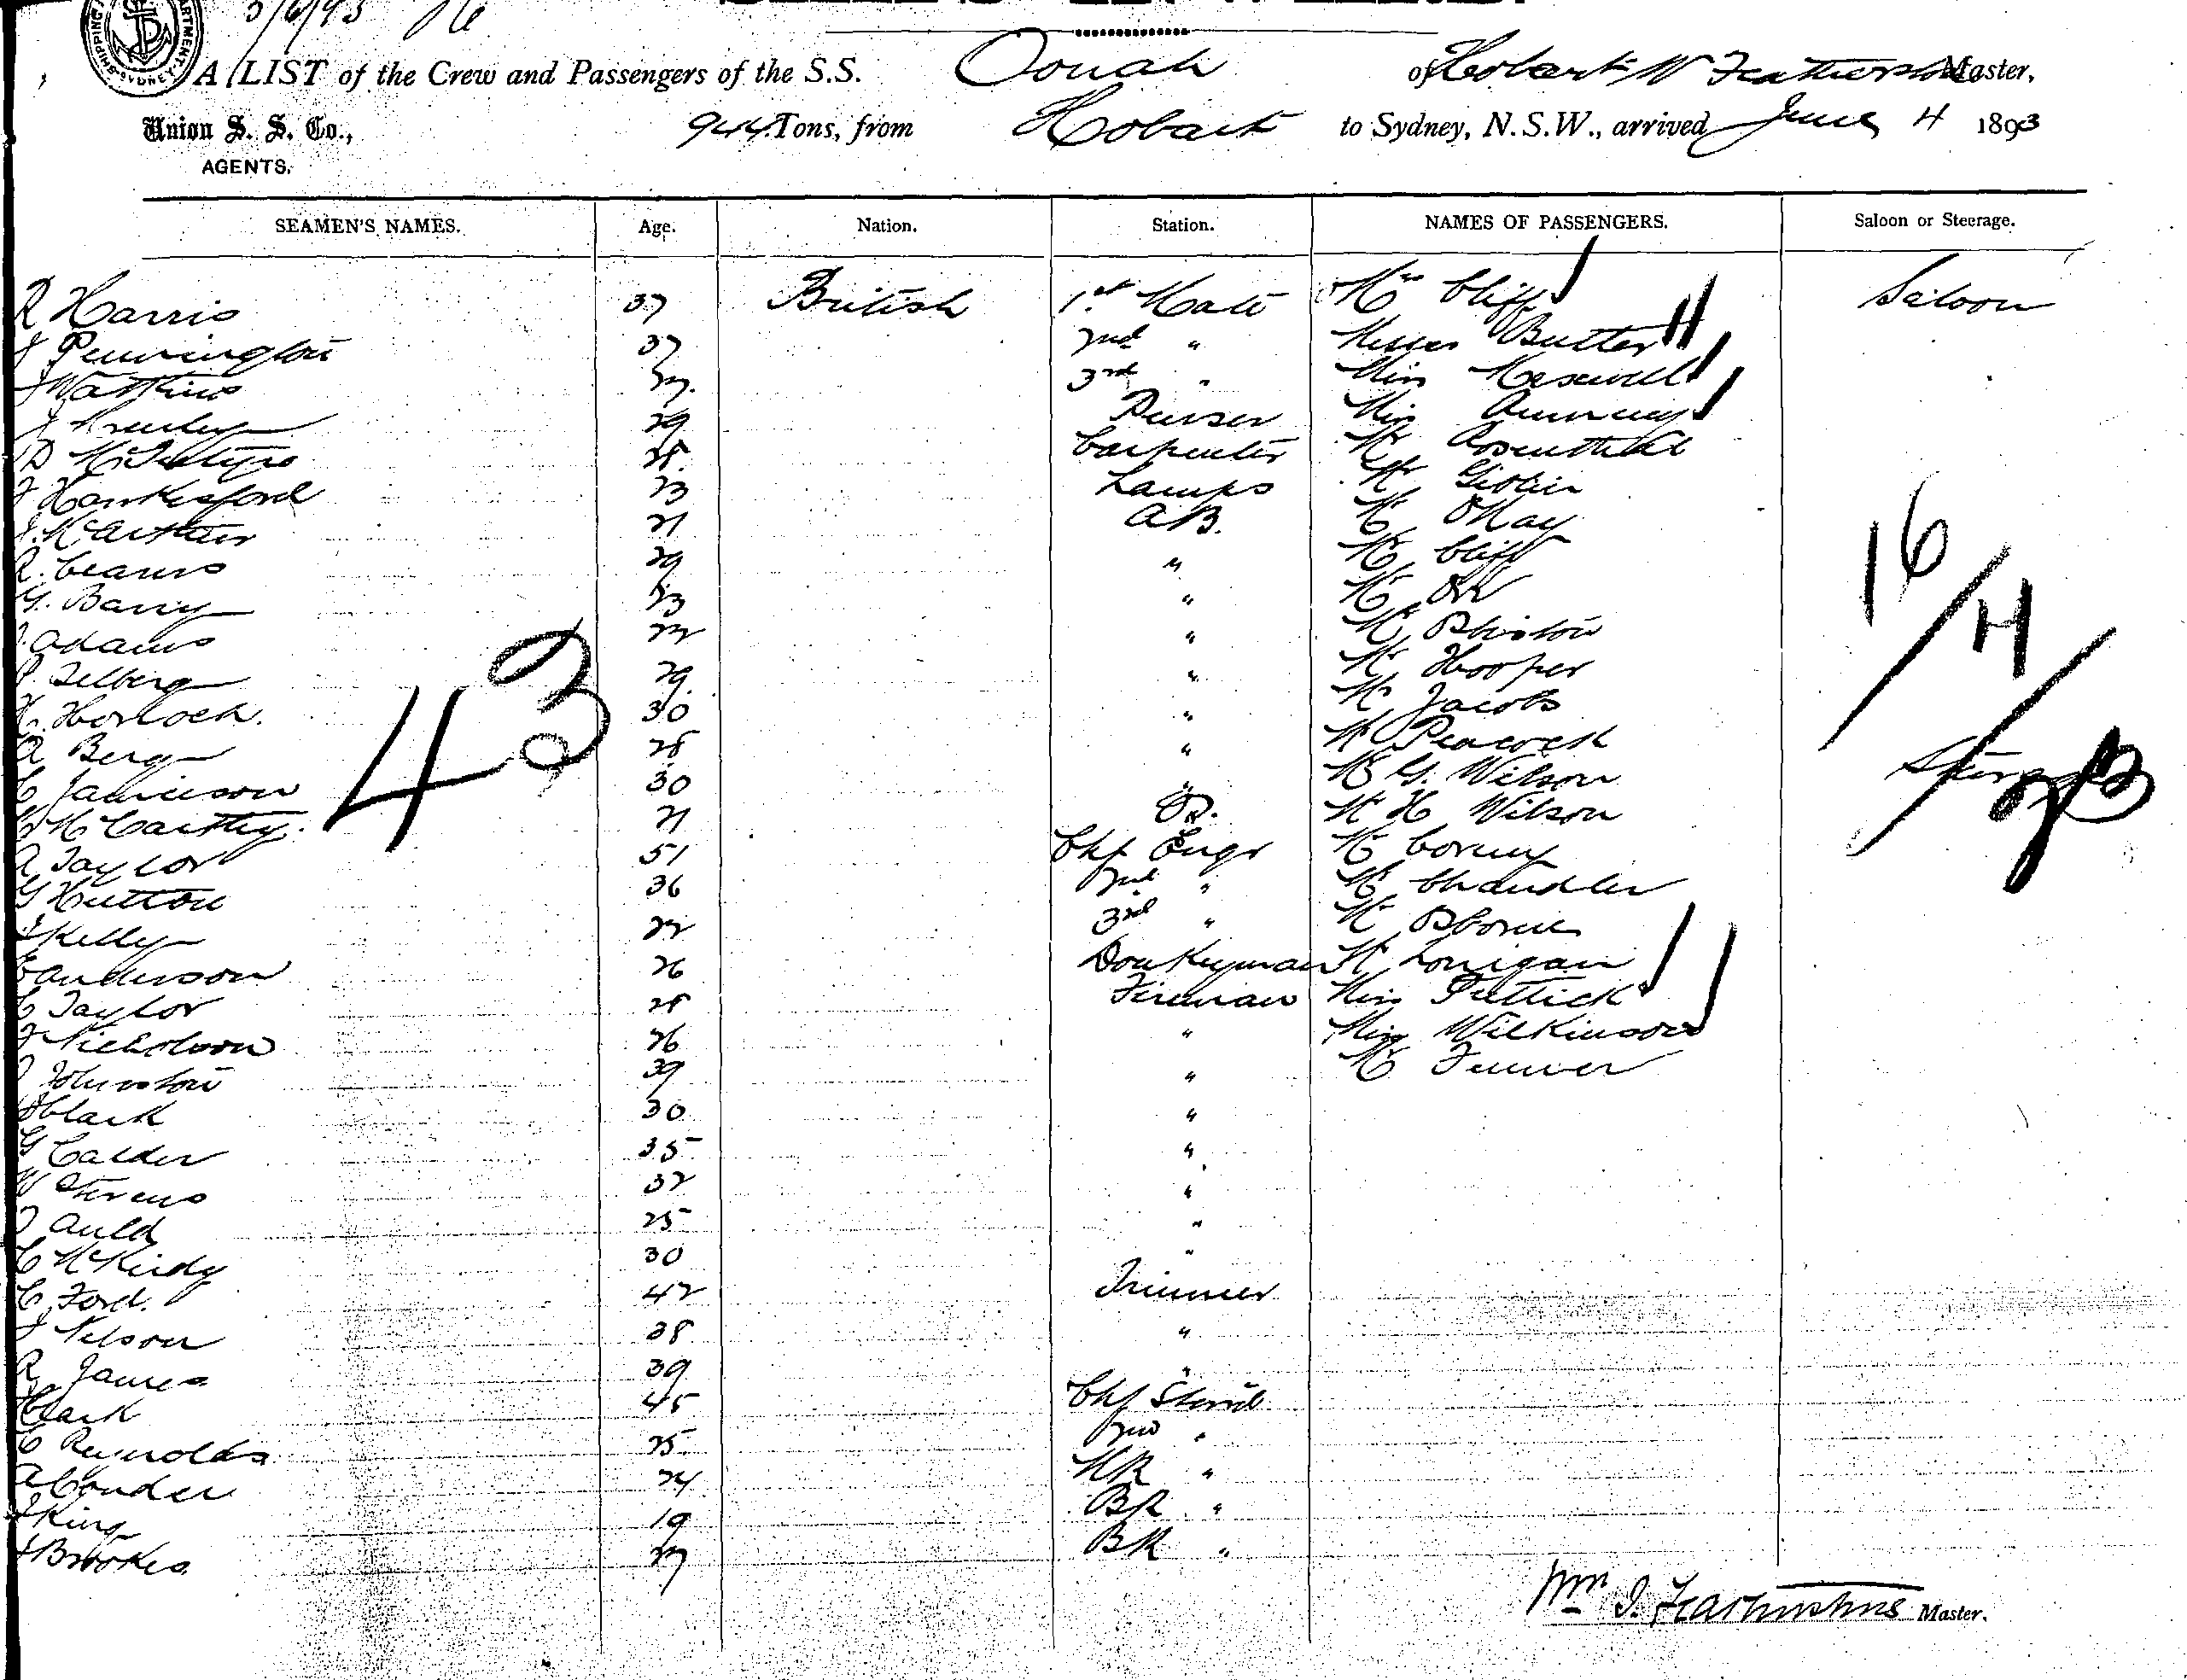 5/6/93
SHIPPING DEPARTMENT SYDNEY
A LIST of the Crew and Passengers of the S.S. Oonah of Hobart W Featherstone Master,
Union S. S. Co., 944 Tons, from Hobart to Sydney, N.S.W., arrived June 4 1893
AGENTS.
SEAMEN'S NAMES. Age. Nation. Station. NAMES OF PASSENGERS. Saloon or Steerage.
R Harris 37 British 1st Mate Mrs Cliff Saloon
J Pennington 37 2nd " Misses Butler
J Watkins 3rd " Miss
J 29 Purser Miss
D McIntyre 28 Carpenter Mr Rosenthal
J Hawkesford 23 Lamps Mr Giblin
J. McArthur 21 A.B. Mr OMay
R. Cearns 29 " Mr Cliff
G. Barry 23 " Mr Orr
J. Adams 22 " Mr
P. Selberg 29 " Mr Hooper
H. Horlock. 30 " Mr Jacobs
A Berg 28 " Mr Peacock
C Jamieson 30 " Mr G. Wilson
McCarthy. 21 OS. Mr H Wilson
A Taylor 51 Chf Engr Mr
G Hutton 36 2nd " Mr Chandler
J Kelly 22 3rd " Mr Osborne
E Anderson 26 Donkeyman Mr Lonigan
C Taylor 28 Fireman Miss Pettick
J Nicholson 26 " Miss Wilkinson
J Johnston 39 " Mr
J Clark 30 "
G Calder 35 "
W Stevens 32 "
J Auld 25 "
C McKirdy 30 "
C Ford. 42 Trimmer
J Nelson 38 "
R James 39 "
Clark 45 Chf Stewd
C Reynolds 25 2nd "
A Conder 24 "
J King 19 BR "
J Brookes 27 BR "
43
16
/
11
/
Wm J. Featherstone Master.